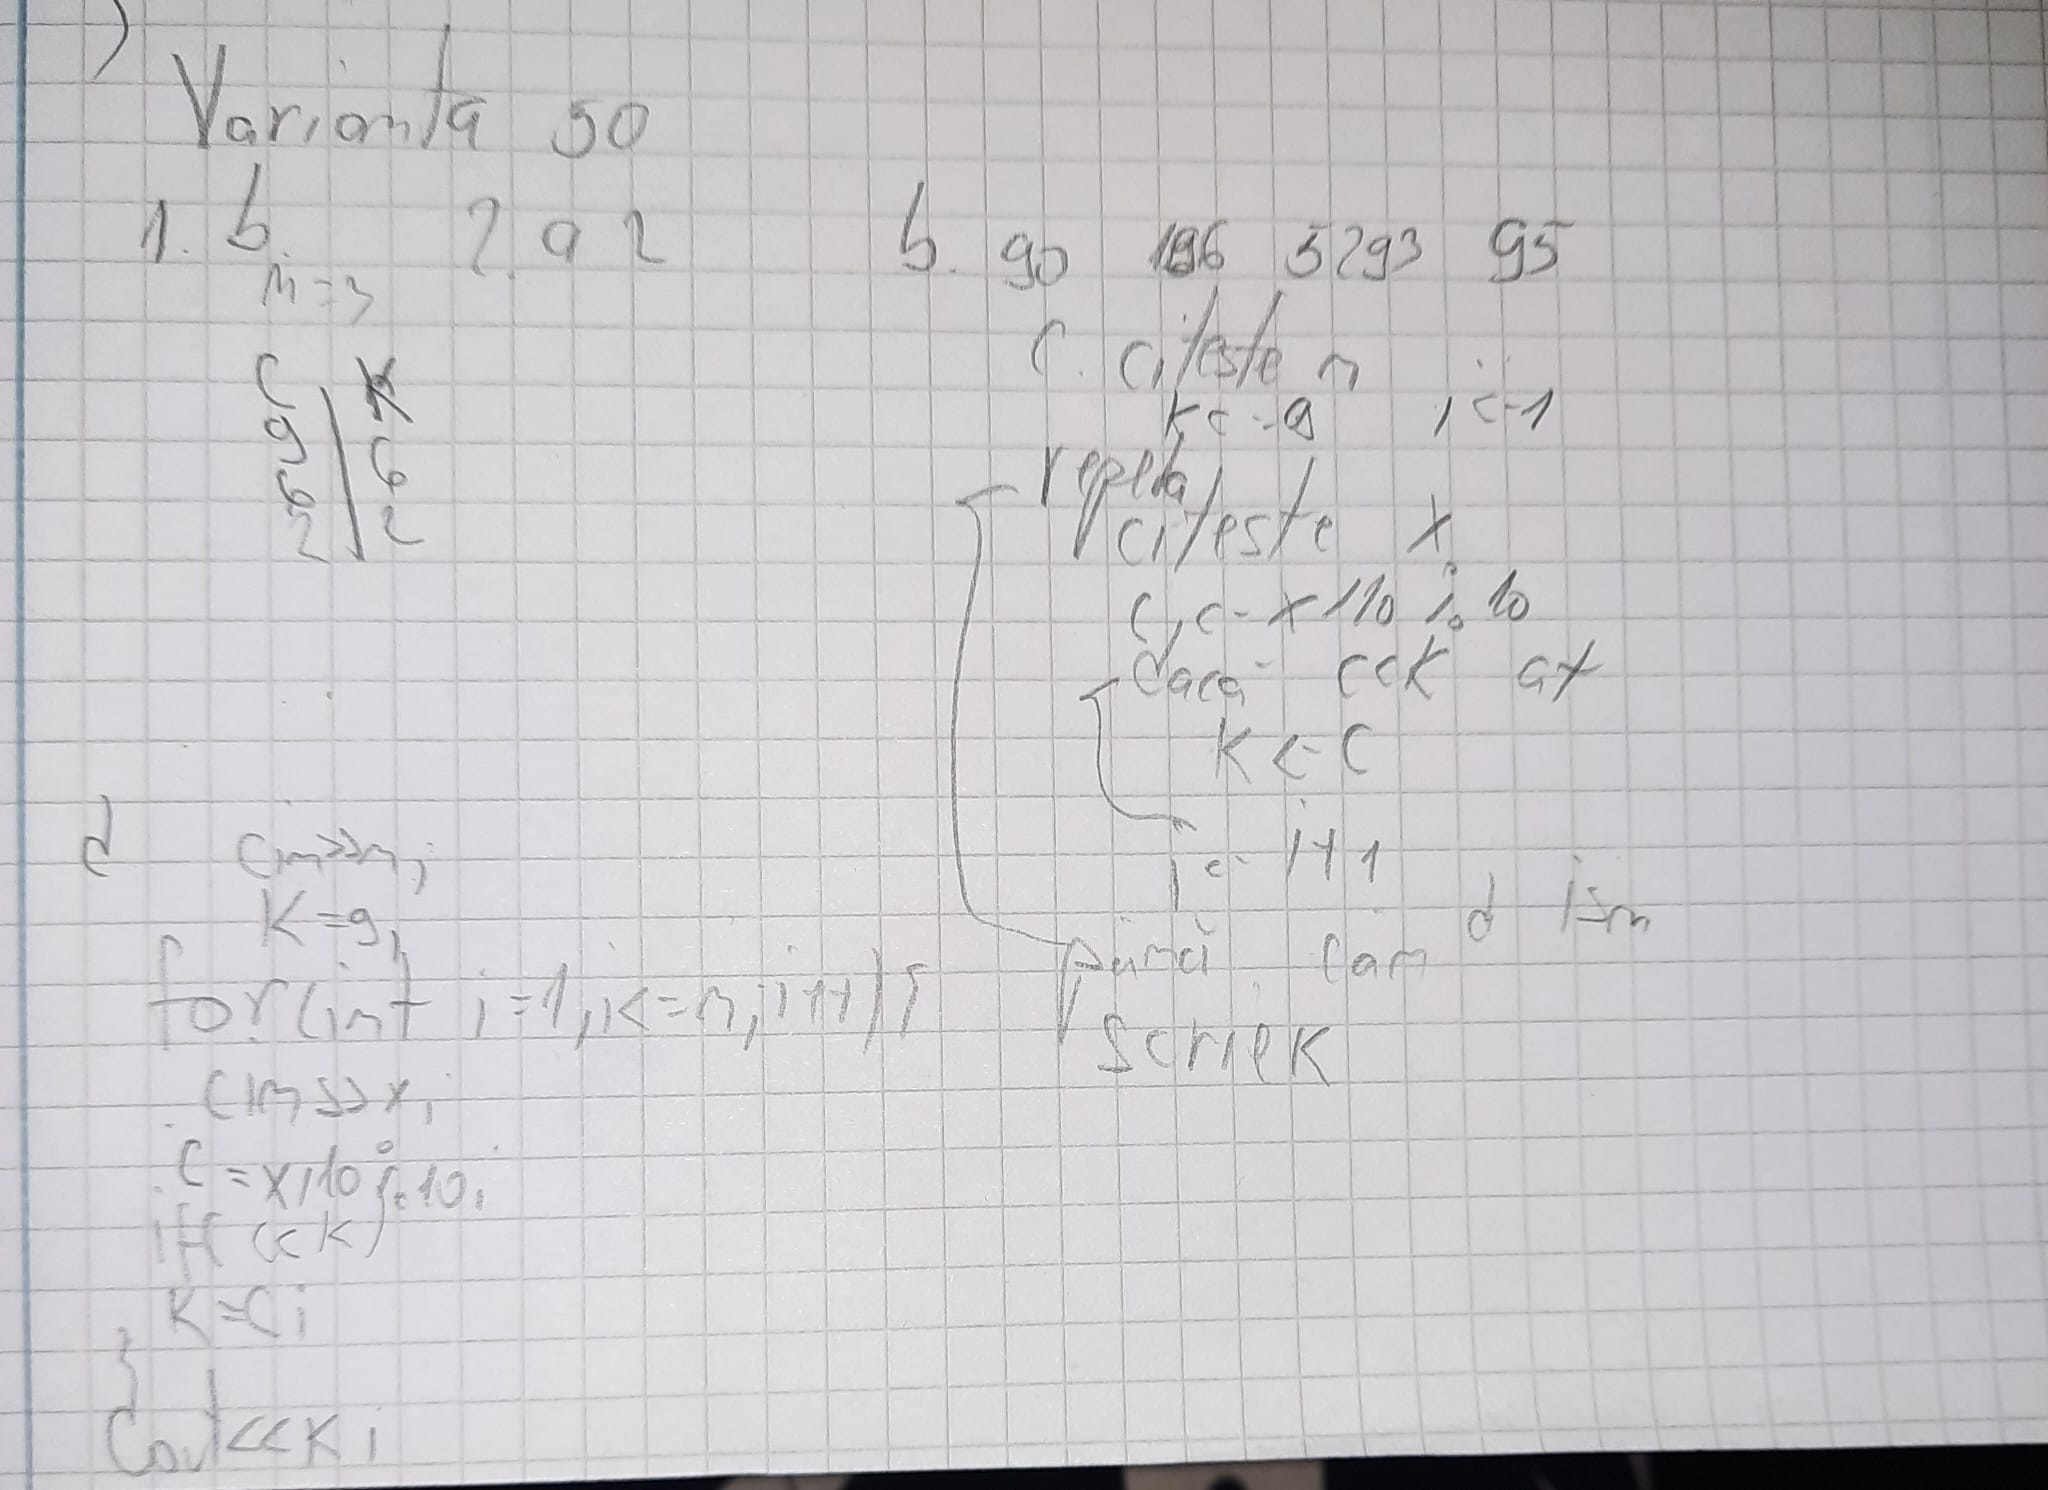 Varianta 50
1. b. 2. a 2 b. 90 196 5293 95
n=3
c k
9
6 6
2 2
c. citeste n
k<-9 i<-1
repeta
citeste x
c<-x/10%10
daca c<k at
k<-c
i<-i+1
până când i>n
scrie k
d cin>>n;
k=9;
for(int i=1;i<=n;i++){
cin>>x;
c=x/10%10;
if(c<k)
k=c;
}
cout<<k;